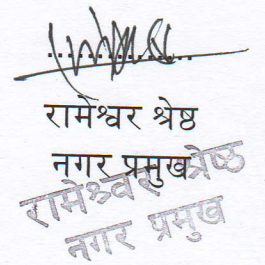 रामेश्वर श्रेष्ठ
नगर प्रमुख
रामेश्वर श्रेष्ठ
नगर प्रमुख